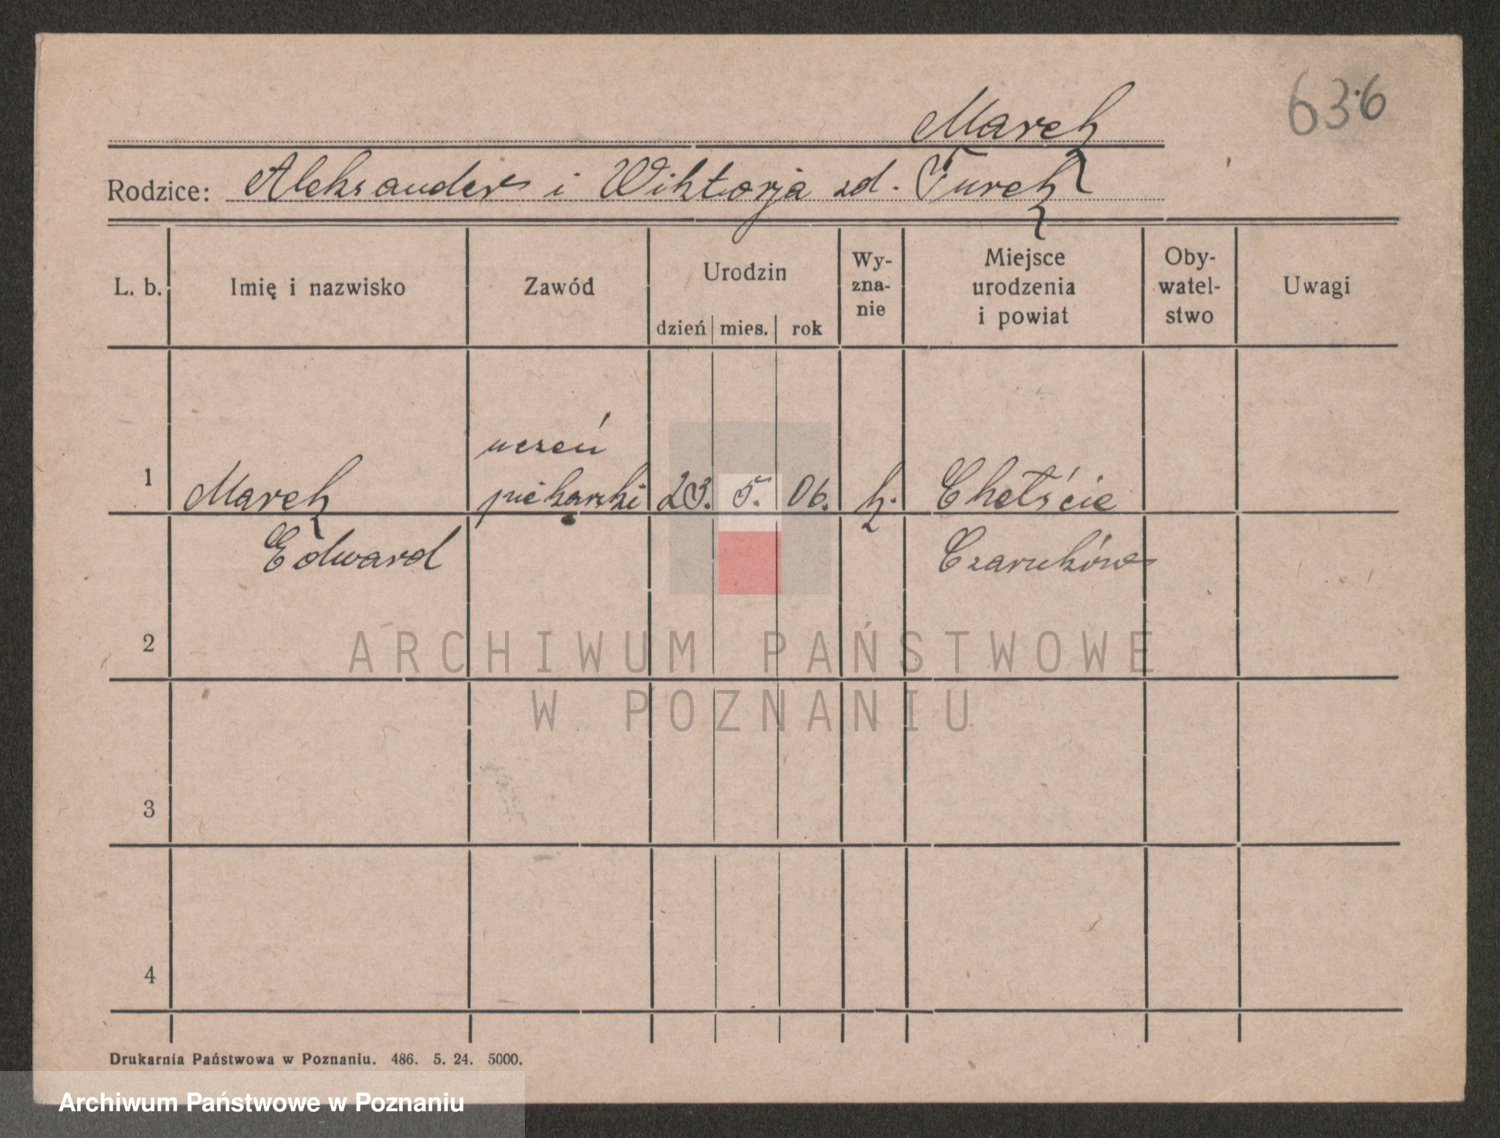 636
Marek
Rodzice: Aleksander i Wiktorja zd. Turek
L. b. Imię i nazwisko Zawód Urodzin dzień mies. rok Wy-zna-nie Miejsce urodzenia i powiat Oby-watel-stwo Uwagi
uczeń
1 Marek piekarski 23. 5. 06. k. Chełście
Edward Czarnków
2
ARCHIWUM PAŃSTWOWE
W POZNANIU
3
4
Drukarnia Państwowa w Poznaniu. 486. 5. 24. 5000.
Archiwum Państwowe w Poznaniu